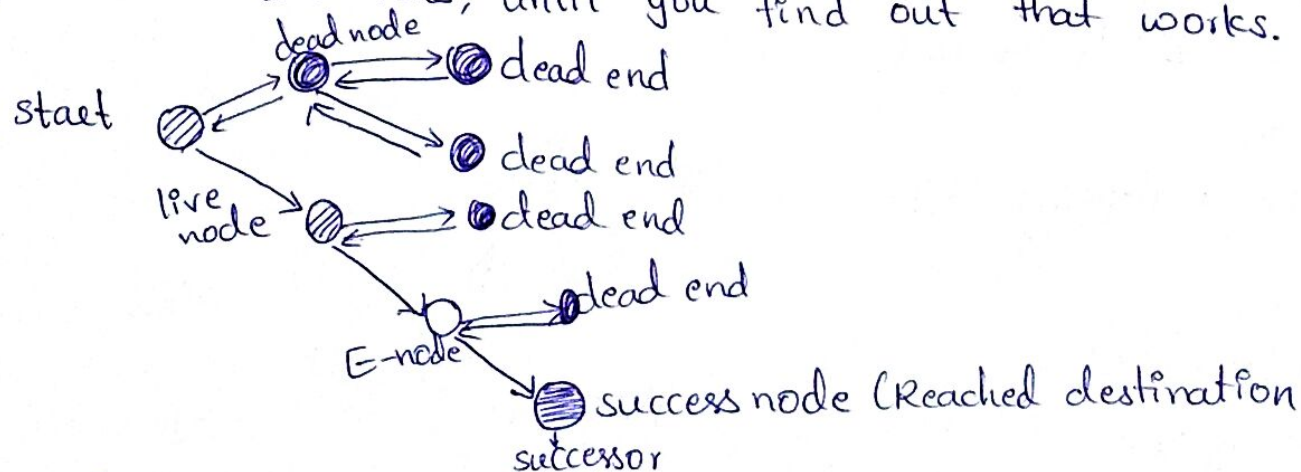 , until you find out that works.
dead node
dead end
start
dead end
live
node
dead end
dead end
E-node
success node (Reached destination
successor